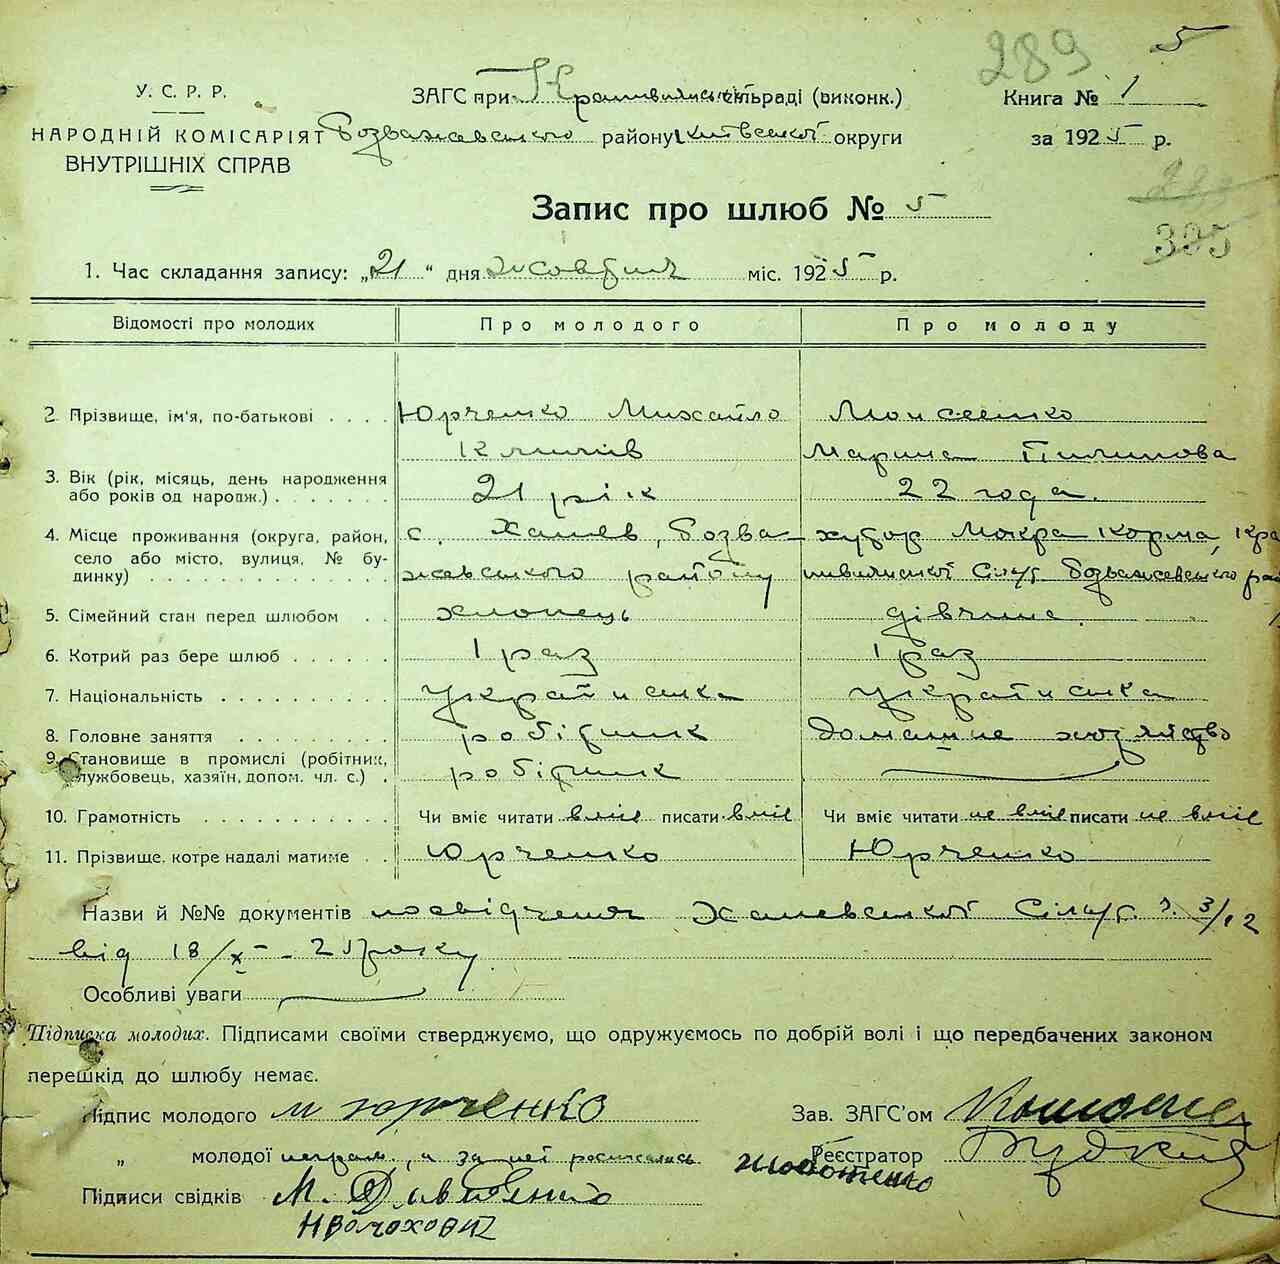 289 5
У. С. Р. Р.
НАРОДНІЙ КОМІСАРІЯТ
ВНУТРІШНІХ СПРАВ
ЗАГС при сільраді (виконк.)
Розважевського району Київської округи
Книга № 1
за 1925 р.
Запис про шлюб № 5
335
1. Час складання запису: „21“ дня Жовтня міс. 1925 р.
Відомості про молодих Про молодого Про молоду
2. Прізвище, ім'я, по-батькові . . . . Юрченко Михайло Моисеенко
Климів Марина Пилипова
3. Вік (рік, місяць, день народження або років од народж.) . . . . . . . 21 рік 22 года.
4. Місце проживання (округа, район, село або місто, вулиця, № будинку) . . . . . . . . . . . с. Ханев, Розва- хутор Мокра Корма, Кра
жевського району Сільр. Розважевського рай
5. Сімейний стан перед шлюбом . . хлопець дівчина.
6. Котрий раз бере шлюб . . . . . . 1 раз 1 раз
7. Національність . . . . . . . . . українська українська
8. Головне заняття . . . . . . . . робітник домашне хозяйство
9. Становище в промислі (робітник, службовець, хазяїн, допом. чл. с.) . робітник
10. Грамотність . . . . . . . . . . . Чи вміє читати вміє писати вміє Чи вміє читати не вміє писати не вміє
11. Прізвище, котре надалі матиме . . Юрченко Юрченко
Назви й №№ документів посвідчення Ханевської Сільр. з. 3/12
від 18/X - 25 року
Особливі уваги
Підписка молодих. Підписами своїми стверджуємо, що одружуємось по добрій волі і що передбачених законом
перешкід до шлюбу немає.
Підпис молодого М Юрченко Зав. ЗАГС'ом
„ молодої неграм., а за неї росписалась Реєстратор
Підписи свідків М.
Н Волохович